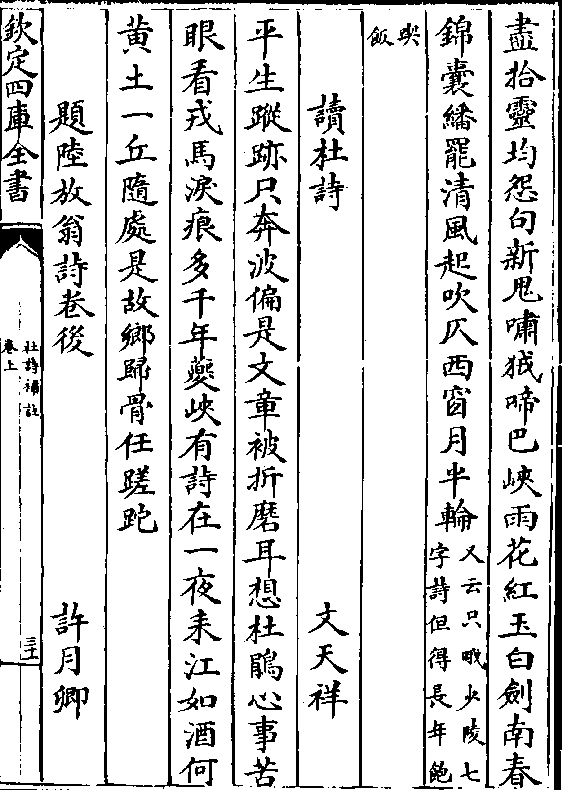 盡拾靈均怨句新鬼嘯狨啼巴峽雨花紅玉白劍南春
錦囊繙罷清風起吹仄西窗月半輪又云只哦少陵七
字詩但得長年飽
喫飯
讀杜詩
文天祥
平生蹤跡只奔波偏是文章被折磨耳想杜鵑心事苦
眼看戎馬淚痕多千年夔峽有詩在一夜耒江如酒何
黄土一丘隨處是故鄉歸骨任蹉跎
題陸放翁詩卷後
許月卿
欽定四庫全書
杜詩補註
卷上